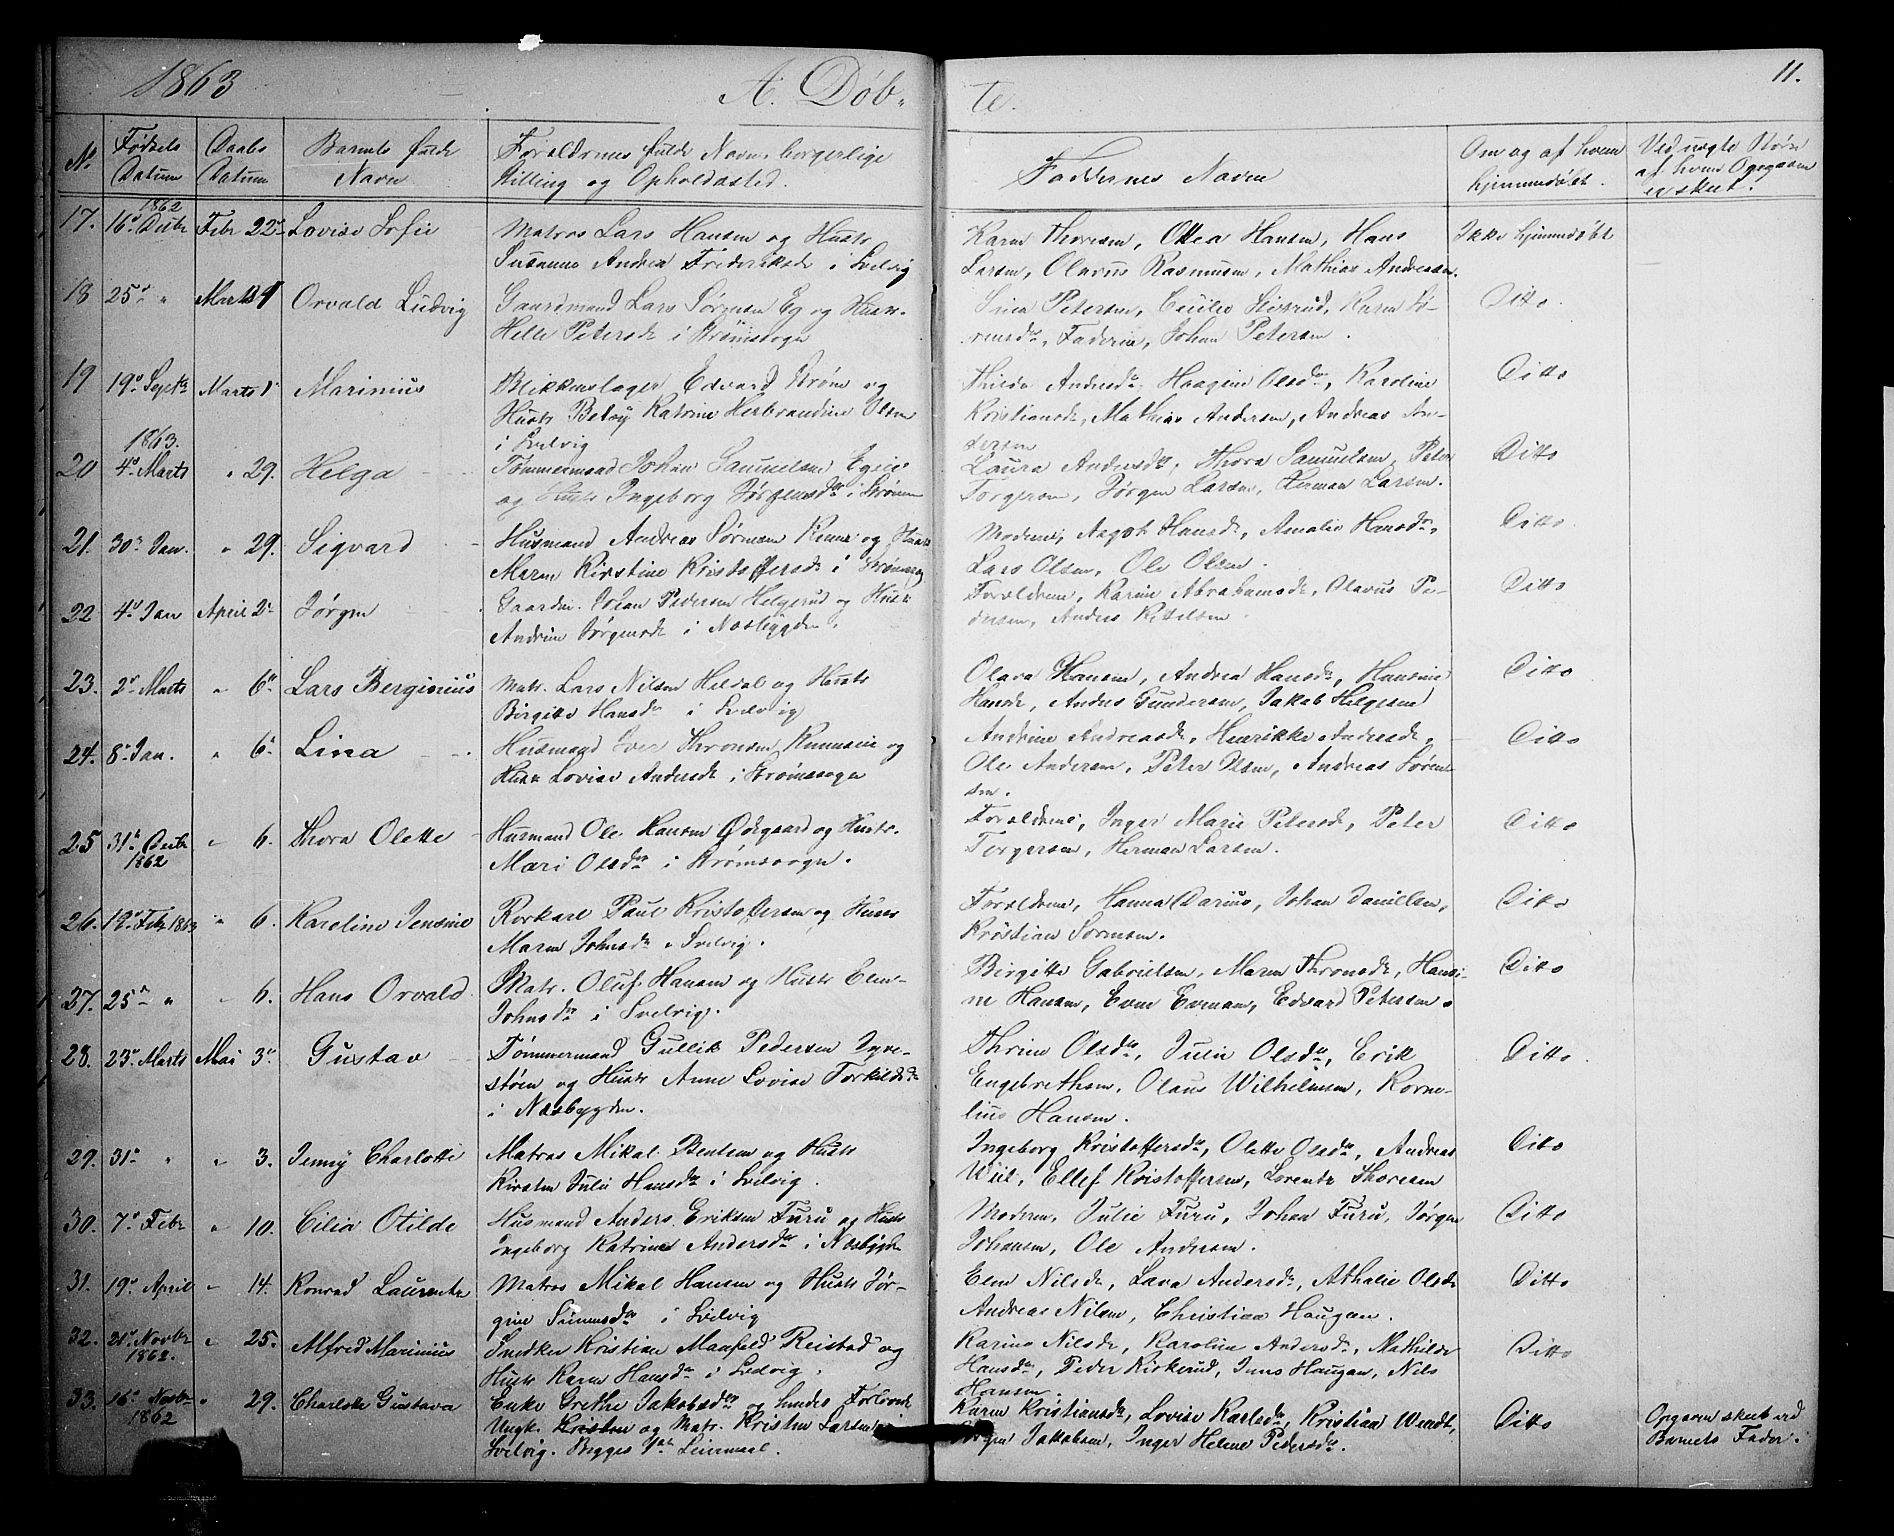 1863
A. Døb-
te.
11.
N.
Fødsels Datum
Daabs Datum
Barnets fulde Navn
Forældrenes fulde Navn, borgerlige
Stilling og Opholdssted.
Faddernes Navne
Om og af hvem hjemmedøbt.
Ved uægte Børn af hvem Opgaven er skeet.
17. 16de Decbr 1862 Febr 22de Lovise Sofie
Matros Lars Hansen og Hustr
Susanne Andrea Frederiksdr i Svelvig
Karen Thoresen, Ottea Hansen, Hans
Larsen, Olavus Rasmusen, Mathias Andresen.
Ikke hjemmedøbt
18 25de " Marts Orvald Ludvig
Gaardmand Lars Sørensen Eg og Hustr.
Helle Petersdr i Strømssogn
Sina Petersen, Cecilie, Karen Sø-
rensdr, Faderen, Johan Petersen.
Ditto
19 19de Septbr Marts 1 Marinius
Blikkenslager Edvard Strøm og
Hustr Betsy Katrine Herbrandine Olsen
i Svelvig
Thilda Andersdr, Haagine Olsdr, Karoline
Kristiansdr, Mathias Andersen, Andreas An-
dersen
Ditto
1863.
20 4de Marts " 29. Helga
Tømmermand Johan Samuelsen
og Hustr Ingeborg Jørgensdr i Strømm
Laura Andersdr, Thora Samuelsen, Peter
Torgersen, Jørgen Larsen, Herman Larsen.
Ditto
21. 30te Jan. " 29. Sigvard
Husmand Andreas Sørensen og Hustr
Maren Kirstine Kristoffersdr i Strømssogn
Moderen, Aagot Hansdr, Amalie Hansdr,
Lars Olsen, Ole Olsen.
Ditto
22 4de Jan April 2de Jørgen
Gaardm. Johan Pedersen Helgerud og Hustr
Andrine Jørgensdr i Næsbygden.
Forældrene, Karine Abrahamsdr, Olavus Pe-
dersen, Anders Kittelsen.
Ditto
23. 2de Marts " 6te Lars Berginius
Matr. Lars Nilsen Heldal og Hustr
Birgitte Hansdr i Svelvig
Olava Hansen, Andrea Hansdr, Hansine
Hansdr, Anders Gundersen, Jakob Helgesen
Ditto
24. 8de Jan. " 6te Lina
Husmand Iver Thronsen og
Hustr Lovise Andersdr i Strømssogn
Andrine Andreasdr, Henrikke Andersdr,
Ole Andersen, Peter Olsen, Andreas Søren-
sen.
Ditto
25 31te Decbr 1862 " 6. Thora Olette
Husmand Ole Hansen Ødegaard og Hustr.
Mari Olsdr i Strømssogn.
Forældrene, Inger Marie Petersdr, Peter
Torgersen, Herman Larsen.
Ditto
26. 19de Febr 1863 " 6. Karoline Jensine
Rorkarl Paul Kristoffersen og Hustr
Maren Johnsdr i Svelvig.
Forældrene, Hanna Darius, Johan Danielsen,
Kristian Sørensen.
Ditto
27. 25de " " 6. Hans Orvald
Matr. Oluf Hansen og Hustr Elen
Johnsdr i Svelvig.
Birgitte Gabrielsen, Maren Thronsdr, Hansi-
ne Hansen, Even Evensen, Edvard Petersen.
Ditto
28. 23de Marts Mai 3de Gustav
Tømmermand Gullik Pedersen Dyve-
støen og Hustr Anne Lovise Torkildsdr
i Næsbygden.
Thrine Olsdr, Julie Olsdr, Erik
Engebrethsen, Olaus Wilhelmsen, Korne-
lius Hansen.
Ditto
29. 31te " " 3. Jenny Charlotte
Matros Mikal Bentsen og Hustr
Kirsten Julie Hansdr i Svelvig.
Ingeborg Kristoffersdr, Olette Olsdr, Andreas
Wiil, Ellef Kristoffersen, Lorentz Thoresen
Ditto
30. 7de Febr " 10. Cilia Otilde
Husmand Anders Eriksen Furu og Hustr
Ingeborg Katrine Andersdr i Næsbygden
Moderen, Julie Furu, Johan Furu, Jørgen
Johansen, Ole Andersen.
Ditto
31. 19de April " 14. Konrad Laurentz
Matros Mikal Hansen og Hustr Jør-
gine Simensdr i Svelvig
Elen Nilsdr, Lava Andersdr, Athalie Olsdr
Andreas Nilsen, Christian Haugan.
Ditto
32. 21de Novbr 1862. " 25. Alfred Marinius
Snedker Kristian Manfeld Reistad og
Hustr Karen Hansdr i Svelvig.
Karine Nilsdr, Karoline Andersdr, Mathilde
Hansdr, Peder Kirkerud, Jens Haugan, Nils
Hansen.
Ditto
33. 16de Novbr 1862 " 29. Charlotte Gustava
Enke Grethe Jakobsdr og hendes Forlovede
Ungk. Kristen og Matr. Kristen Larsen i
Svelvig. Begges 1ste Leiermaal.
Karen Kristiansdr, Lovise Karlsdr, Kristian Wendt,
Jørgen Jakobsen, Inger Helene Pedersdr.
Ditto
Opgaven skeet ved
Barnets Fader.